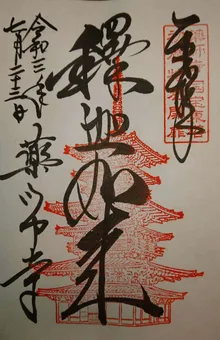 奉拝
釋迦如来
薬師寺
令和三年
七月二十三日